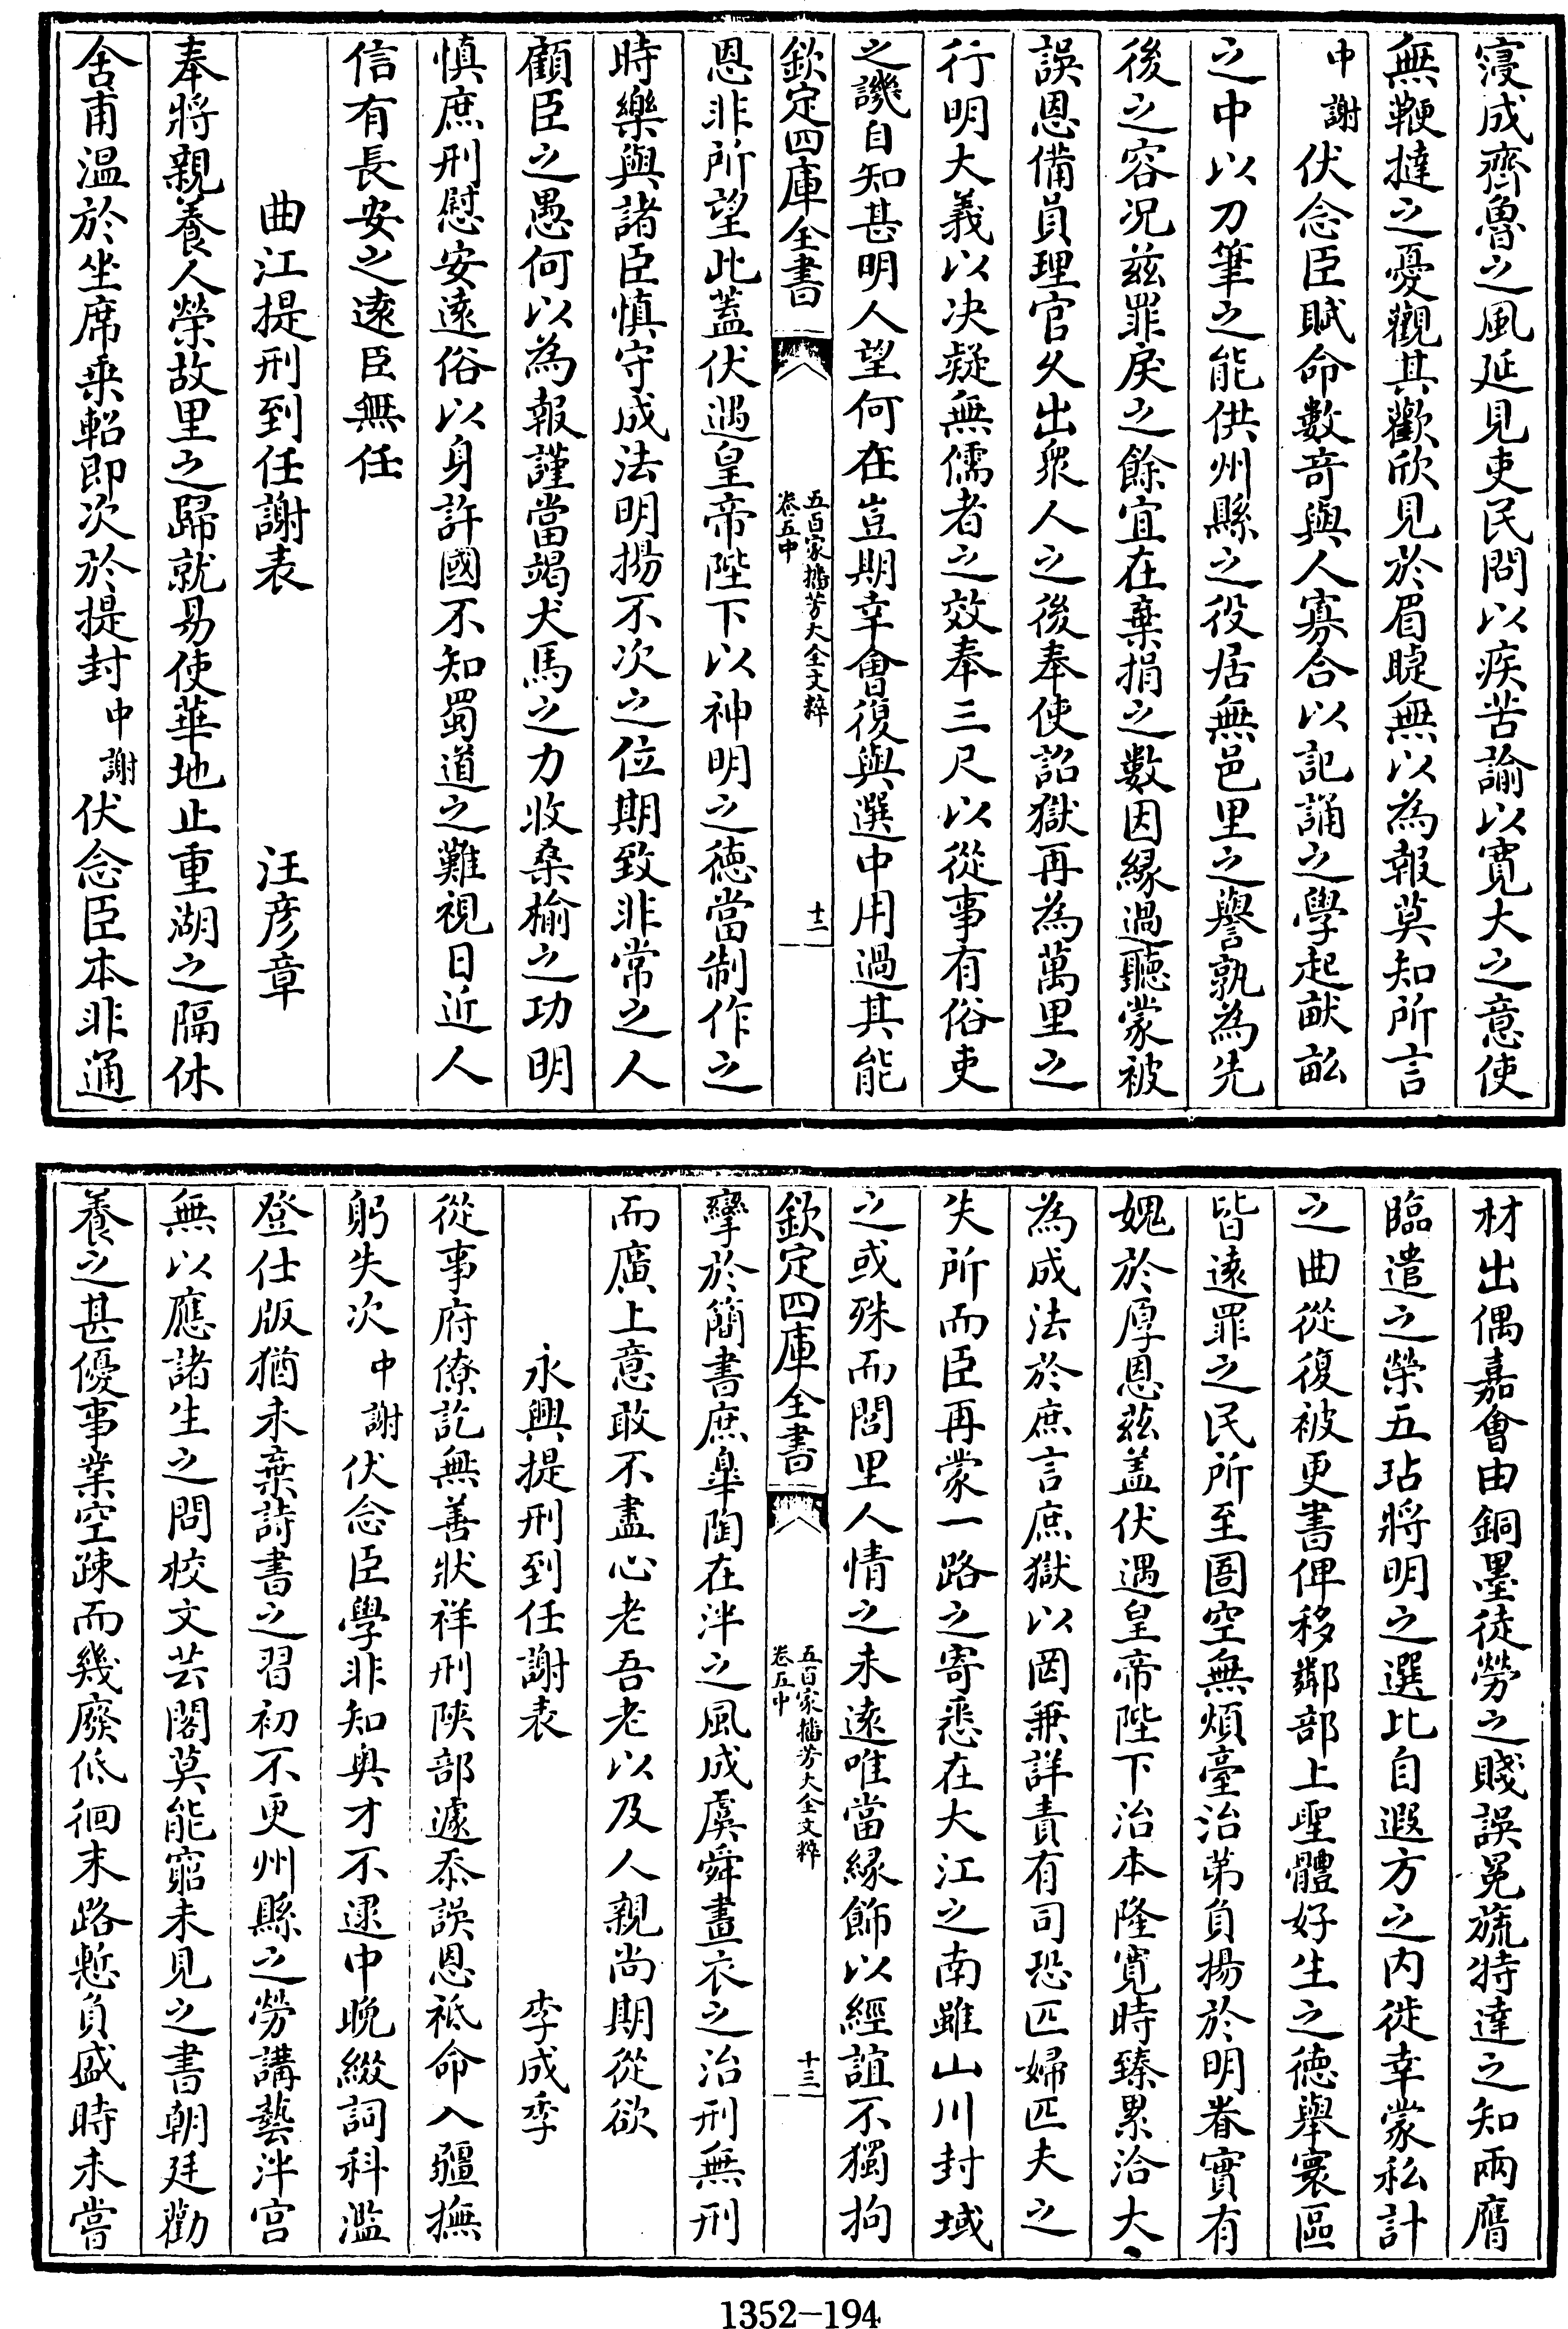 寖成齊魯之風延見吏民問以疾苦諭以寛大之意使
無鞭撻之憂觀其歡欣見於眉睫無以為報莫知所言
中謝伏念臣賦命數竒與人寡合以記誦之學起畎畝
之中以刀筆之能供州縣之役居無邑里之譽孰為先
後之容况兹罪戾之餘宜在棄捐之數因緣過聽蒙被
誤恩備員理官久出衆人之後奉使詔獄再為萬里之
行明大義以决疑無儒者之效奉三尺以從事有俗吏
之譏自知甚明人望何在豈期幸會復與選中用過其能
欽定四庫全書
五百家播芳大全文粹
卷五中
十二
恩非所望此蓋伏遇皇帝陛下以神明之徳當制作之
時樂與諸臣慎守成法明揚不次之位期致非常之人
顧臣之愚何以為報謹當竭犬馬之力收桑榆之功明
慎庶刑慰安遠俗以身許國不知蜀道之難視日近人
信有長安之遠臣無任
曲江提刑到任謝表
汪彦章
奉將親養人榮故里之歸就易使華地止重湖之隔休
舍甫温於坐席乘軺即次於提封中謝伏念臣本非通
材出偶嘉會由銅墨徒勞之賤誤冕旒特達之知兩膺
臨遣之榮五玷將明之選比自遐方之内徙幸蒙私計
之曲從復被更書俾移鄰部上聖體好生之徳舉寰區
皆遠罪之民所至圄空無煩臺治第負揚於明眷實有
媿於厚恩兹盖伏遇皇帝陛下治本隆寛時臻累洽大
為成法於庶言庶獄以罔兼詳責有司恐匹婦匹夫之
失所而臣再蒙一路之寄悉在大江之南雖山川封域
之或殊而閭里人情之未遠唯當緣飾以經誼不獨拘
欽定四庫全書
五百家播芳大全文粹
卷五中
十三
攣於簡書庶臯陶在泮之風成虞舜畫衣之治刑無刑
而廣上意敢不盡心老吾老以及人親尚期從欲
永興提刑到任謝表
李成季
從事府僚訖無善狀祥刑陜部遽忝誤恩祗命入疆撫
躬失次中謝伏念臣學非知奥才不逮中晩綴詞科濫
登仕版猶未棄詩書之習初不更州縣之勞講藝泮宫
無以應諸生之問校文芸閣莫能窮未見之書朝廷勸
養之甚優事業空疎而幾廢低徊末路慙負盛時未嘗
1352-194